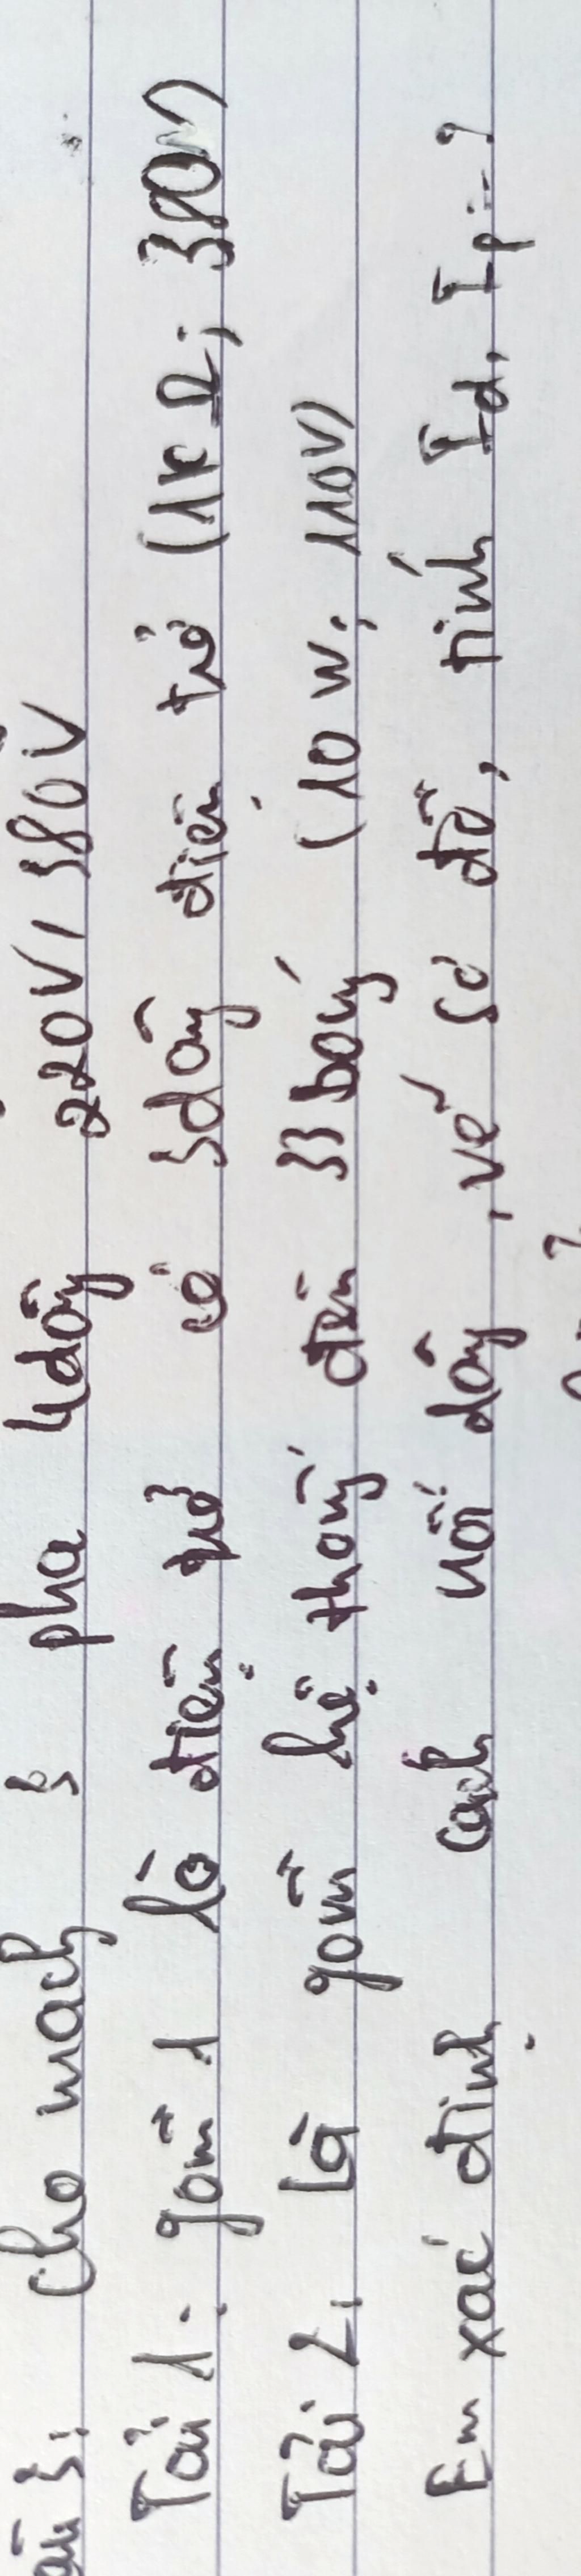 3: Cho mạch 3 pha 4 dây 220V, 380V
Tải 1: gồm 1 lò điện trở có 3 dây điện trở (1kΩ; 380V)
Tải 2: Là gồm hệ thống đèn 33 bóng (10 W; 110V)
Em xác định cách nối dây, vẽ sơ đồ, tính Id, Ip=?